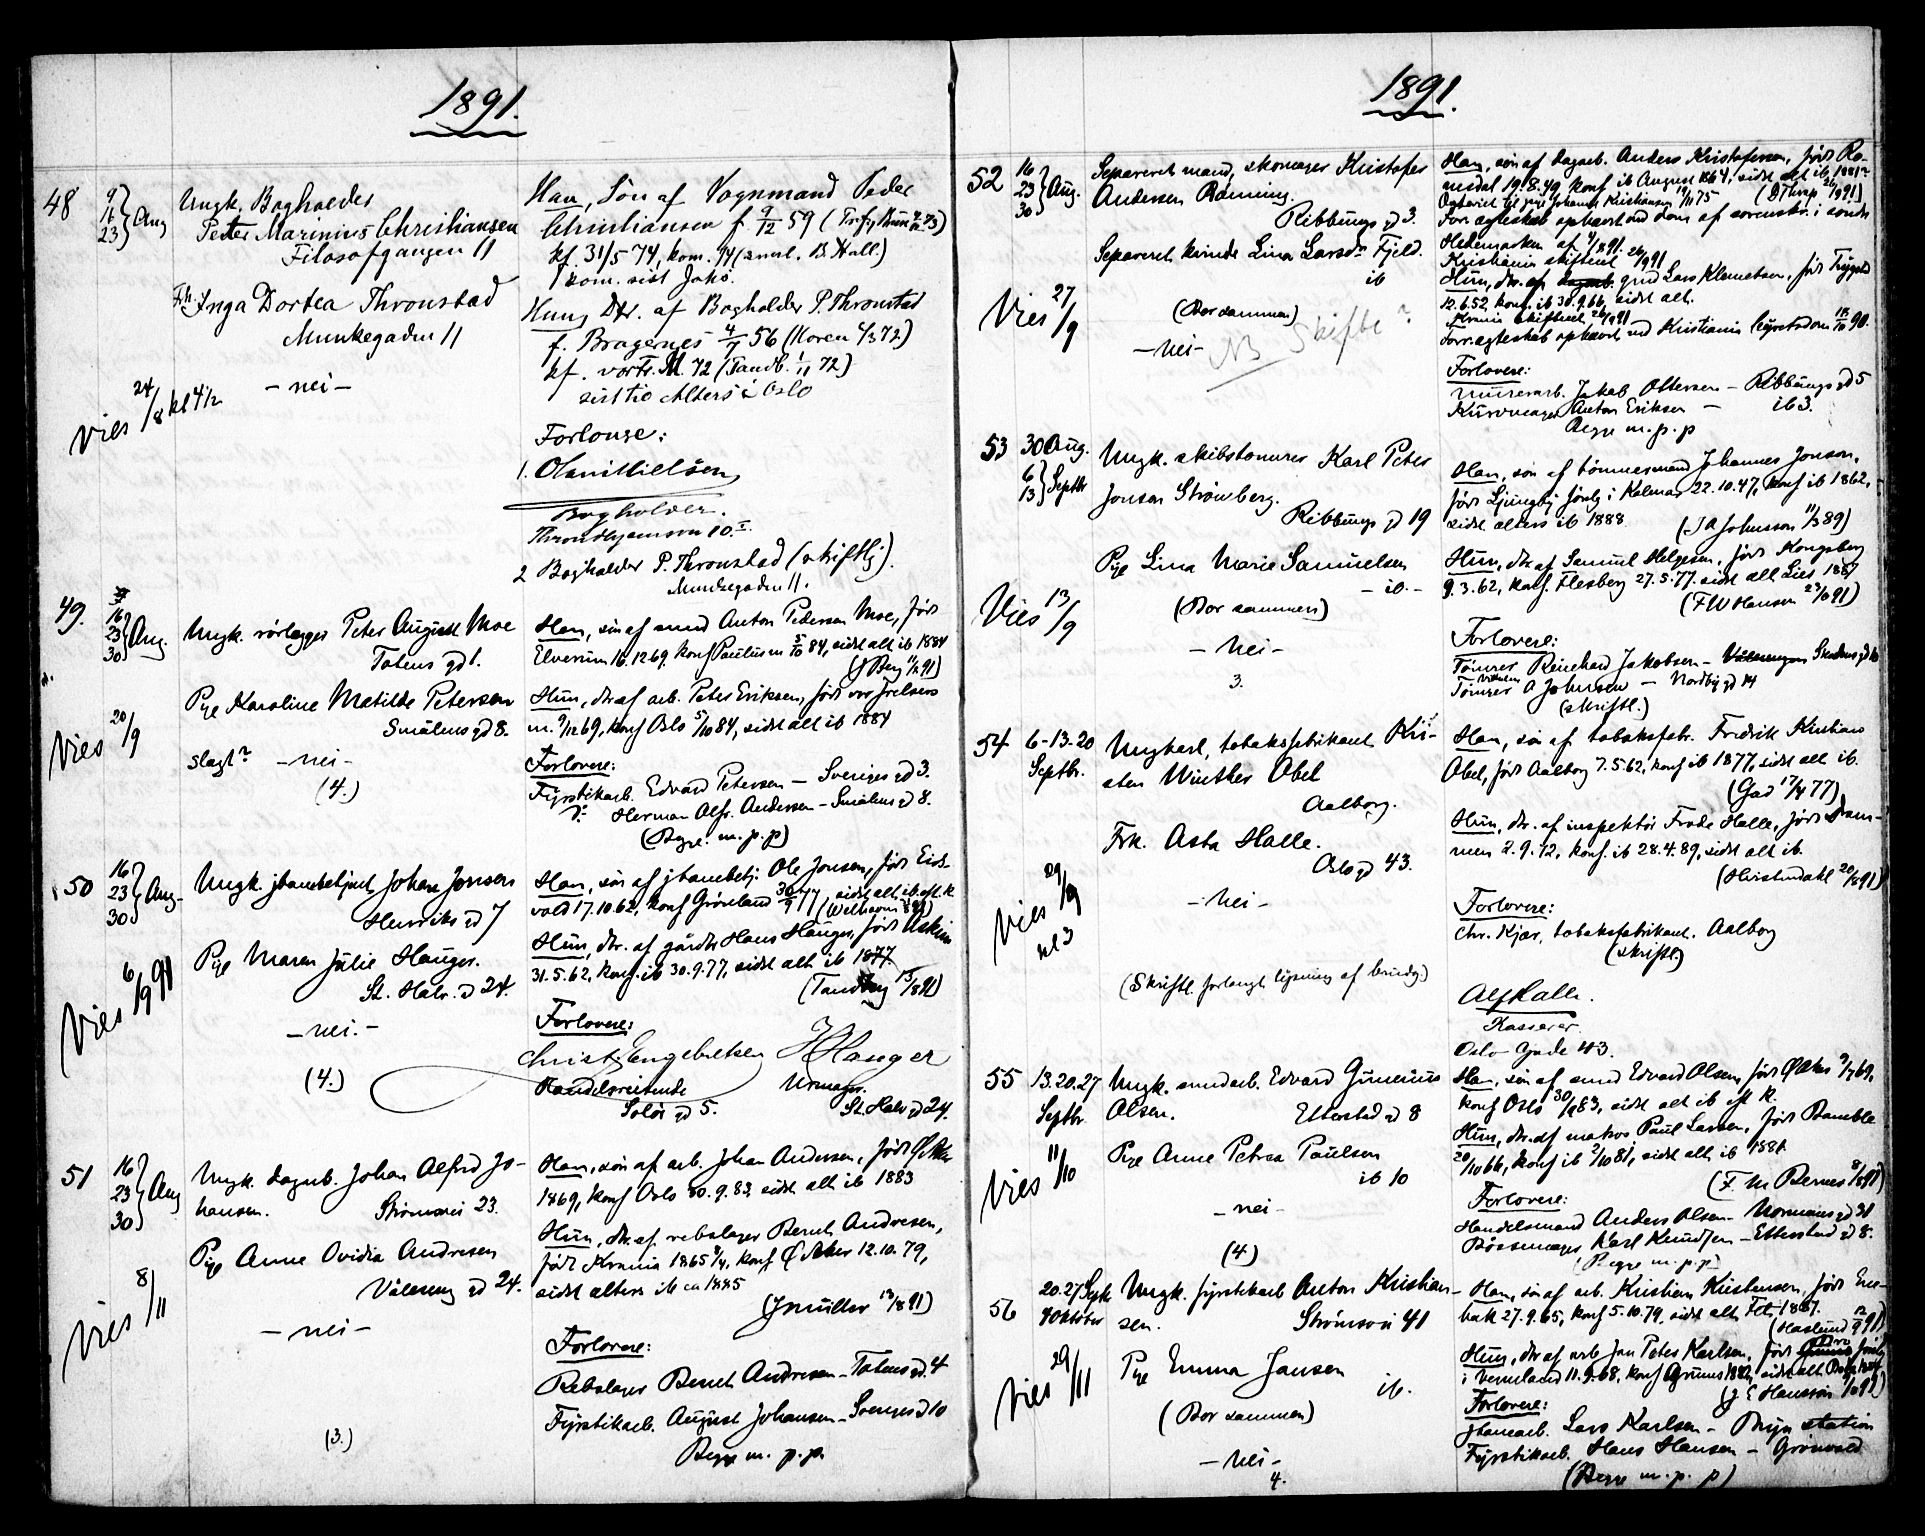 1891.
48
9
16
23 } Aug
Ungk. Bogholder
Peter Marinius Christiansen
Filosofgangen 11
Frk. Inga Dortea Thronstad
Munkegaden 11
- nei -
Vies 24/8 kl 4½
Han, Søn af Vognmand Peder
Christiansen f. 9/12 59
kf. 31/5 74, kom. 74
Hun, Dtr. af Bogholder P. Thronstad
f. Bragernes 4/7 56 (Koren 4/3 72)
kf. vor Fr. 72 (Tandb. 1/11 72)
sidst til Alters i Oslo
Forlovere:
1. Olaus Nielsen
Bogholder.
Throndhjemsvn 10.
2 Bogholder P. Thronstad (skriftlj).
Munkegaden 11.
49.
16
23
30 } Aug.
Ungk. rørlægger Peter August Moe
Totens gd 1.
Pige Karoline Matilde Petersen
Smålens gd 8.
slægt? - nei -
(4.)
Vies 20/9
Han, søn af smed Anton Pedersen Moe, født
Elverum 16.12 69. konf Paulus m 5/10 84, sidst alt ib 1884
(J Berg 11/8 91)
Hun, dtr. af arb. Peter Eriksen, født vor frelsers
m. 9/12 69, konf Oslo 5/10 84, sidst alt ib 1884
Forlovere:
Fyrstikarb. Edvard Petersen - Sveriges gd 3.
Herman Alfr. Andersen - Smålens gd 8.
(Begge m. p. p)
50
16
23
30 } Aug.
Ungk. jbanebetjent Johan Jonsen
Henriks gd 7
Pige Maren Julie Hauger.
St. Halv. gd 24.
- nei. -
(4.)
Vies 6/9 91
Han, søn af jbanebetj: Ole Jonsen, født Eids-
vold 17.10.62, konf Grønland 30/9 77, sidst alt ib
Hun, dtr. af gårdbr Hans Hauger, født Askim
31.5.62, konf. ib 30.9.77, sidst alt ib 1877.
(Tandberg 13/8 91)
Forlovere:
Christ. Engebretsen H Hauger
Handelsreisende Urmager.
Solør gd 5. St. Halv gd 24.
51
16
23
30 } Aug
Ungk. dagarb. Johan Alfred Jo-
hansen. Strømsvei 23.
Pige Anne Ovidia Andresen
Vålereng gd 24.
- nei -
(3.)
Vies 8/11
Han, søn af arb. Johan Andersen, født Ø. Aker
1869, konf Oslo 30.9.83, sidst alt ib 1883
Hun, dtr. af rebslager Bernt Andresen,
født Kr.ania 1865 9/4, konf Ø Aker 12.10.79,
sidst alters ib ca 1885
(J Müller 13/8 91)
Forlovere:
Rebslager Bernt Andresen - Totens gd. 4
Fyrstikarb. August Johansen - Sveriges gd 10
Begge m. p. p.
1891.
52
16
23
30 } Aug.
Separeret mand, skomager Kristofer
Andersen Rønning.
Ribbungs gd 3.
Separeret kvinde Lina Larsdr Fjeld.
ib
(Bor sammen)
- Nei -
NB Skifte?
Vies 27/9
Han, søn af dagarb. Anders Kristofersen, født Ro-
msdal 19.8.49, konf ib August 1864, sidst alt ib 1881?
Forr. ægteskab ophævet ved dom af sorenskr. i søndr
Hedemarken af 4/1 891.
Kristiania skifteret 26/9 91
Hun, dtr. af grd Lars Klemetsen, født Trygstd
12.6.52, konf. ib 30.9.66, sidst alt.
Krania skifteret 26/9 91
Forr. ægteskab ophævet ved Kristiania byretsdom 18/10 90.
Forlovere:
Murerarb. Jakob Ottersen - Ribbungs gd 5
Kurvmager Anton Eriksen - ib 3.
Begge m. p. p
53
30 Aug.
6
13 } Septbr
Ungk. skibstømrer Karl Peter
Jonson Strømberg.
Ribbungs gd 19
Pige Lina Marie Samuelsen
- ib. -
(Bor sammen)
- Nei -
3.
Vies 13/9
Han, søn af tømmermand Johannes Jonson,
født Ljungby förslg i Kalmar 22.10.47, konf ib 1862,
sidst alters ib 1888.
(J A Johnsson 11/3 89)
Hun, dtr. af Samuel Helgesen, født Kongsberg
9.3.62, konf. Flesberg 27.5.77. sidst alt Lier 1887
(F W Hansen 23/8 91)
Forlovere:
Tømrer Reinhard Jakobsen - Skedsmo gd 10
Tømrer Vilhelm A Johnsen - Nordby gd 14
(skriftl.)
54
6-13-20
Septbr.
Ungkarl, tobaksfabrikant Kri-
sten Winther Obel
Aalborg.
Frk. Asta Halle.
Oslo gd 43.
- Nei -
(Skriftl. forlangt lysning af brudg.)
Vies 29/9
kl 3
Han, søn af tobaksfabr. Fredrik Kristian
Obel, født Aalborg 7.5.62, konf ib 1877, sidst alt ib.
(Gad 17/4 77)
Hun, dtr. af inspektør Frode Halle, født Dram-
men 2.9.72, konf. ib 28.4.89, sidst alt ib.
(Hvistendahl 20/8 91)
Forlovere:
Chr. Kjær, tobaksfabrikant. Aalborg
(skriftl.)
Alf Halle.
Kasserer.
Oslo Gade 43.
55
13.20.27
Septbr.
Ungk. smedarb. Edvard Gunerius
Olsen. Etterstad gd 8
Pige Anne Petrea Paulsen
ib 10
- nei -
(4)
Vies 11/10
Han, søn af smed Edvard Olsen, født Ø Aker 9/7 69,
konf Oslo 30/9 83, sidst alt ib eft k.
Hun, dtr. af matros Paul Larsen, født Bamble
20/10 66, konf ib 2/10 81, sidst alt ib 1881.
(F. M Bernes 8/8 91)
Forlovere:
Handelsmand Anders Olsen - Normans gd 31
Børsemager Karl Knudsen - Etterstad gd 8.
(Begge m. p. p)
56
20.27 Sept
4 Oktober
Ungk. fyrstikarb Anton Kristian-
sen. Strømsvei 41
Pige Emma Jansen
ib.
(Bor sammen)
- Nei -
4.
Vies 29/11
Han, søn af arb. Kristian Kristensen, født Ene-
bak 27.9.65, konf 5.10.79, sidst alt Fet, 1887.
(Haslund 12/9 91)
Hun, dtr af arb Jan Peter Karlsen, født
i Vermland 11.9.68, konf Grums 1882, sidst alt
(J E Hansson
Forlovere:
Jbanearb. Lars Karlsen - Bryn station
Fyrstikarb. Hans Hansen - Grønvold
(Begge m. p. p)